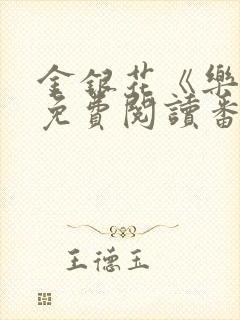 金銀花《樂
免費閱讀番
王德玉